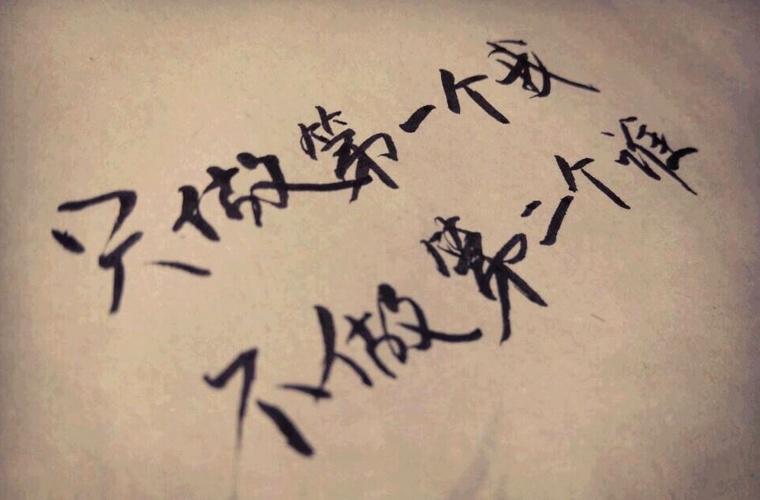 只做第一个我
不做第二个谁